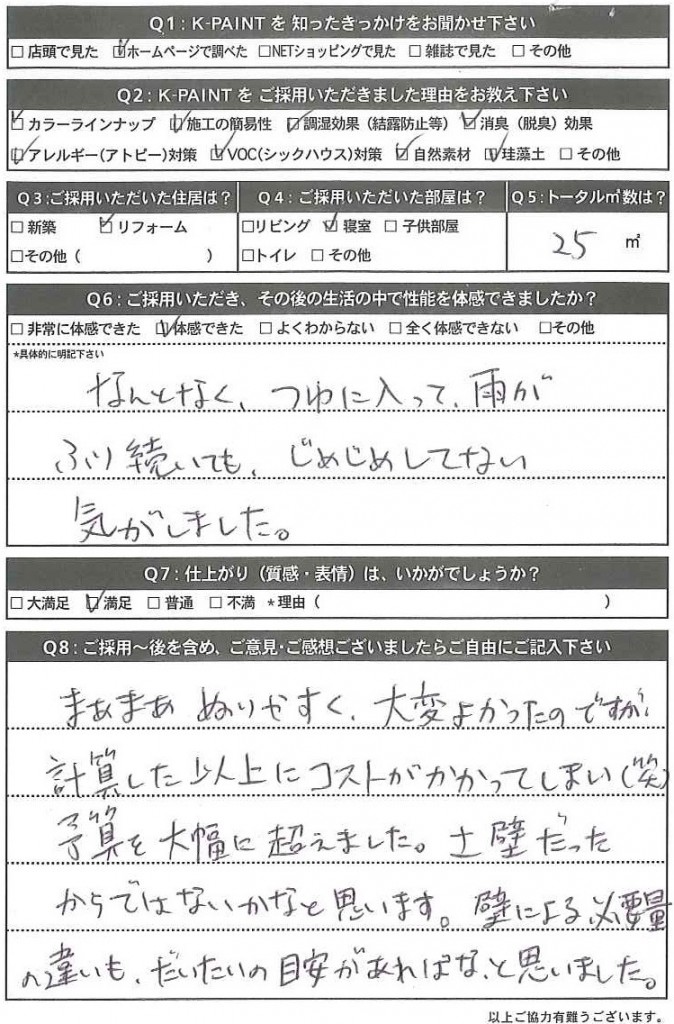 Q1：K-PAINTを 知ったきっかけをお聞かせ下さい
□ 店頭で見た ☑ホームページで調べた □NETショッピングで見た □ 雑誌で見た □ その他
Q2：K-PAINTを ご採用いただきました理由をお教え下さい
☑ カラーラインナップ ☑施工の簡易性 ☑ 調湿効果（結露防止等） ☑消臭（脱臭）効果
☑アレルギー(アトピー)対策 ☑VOC(シックハウス)対策 ☑ 自然素材 ☑珪藻土 □ その他
Q3:ご採用いただいた住居は？ Q4：ご採用いただいた部屋は？ Q5：トータル㎡数は？
□ 新築 ☑ リフォーム □リビング ☑ 寝室 □ 子供部屋 25 ㎡
□その他（ ） □トイレ □ その他
Q6：ご採用いただき、その後の生活の中で性能を体感できましたか？
□ 非常に体感できた ☑体感できた □ よくわからない □ 全く体感できない □その他
*具体的に明記下さい
なんとなく、つゆに入って、雨が
ふり続いても、じめじめしてない
気がしました。
Q7：仕上がり（質感・表情）は、いかがでしょうか？
□ 大満足 ☑満足 □ 普通 □ 不満 *理由（ ）
Q8：ご採用～後を含め、ご意見・ご感想ございましたらご自由にご記入下さい
まあまあ ぬりやすく、大変よかったのですが、
計算した以上にコストがかかってしまい(笑)
予算を大幅に超えました。土壁だった
からではないかなと思います。壁による必要量
の違いも、だいたいの目安があればな、と思いました。
以上ご協力有難うございます。